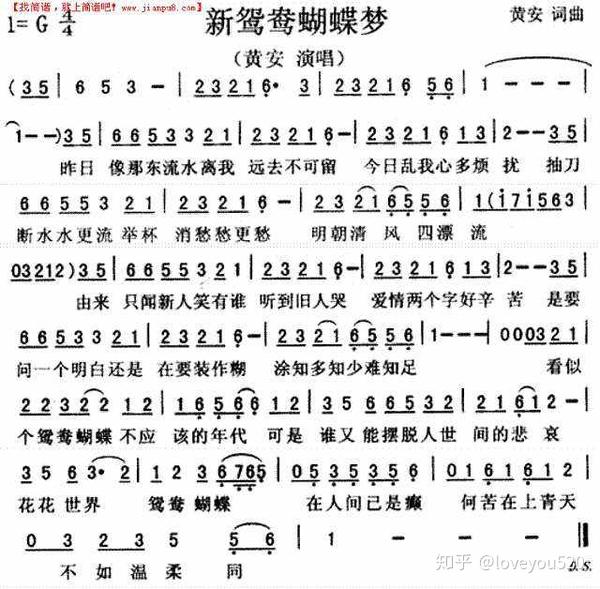 【找简谱，就上简谱吧！www.jianpu8.com】
1=G 4/4
新鸳鸯蝴蝶梦
黄安 词曲
(黄安 演唱)
(3 5 | 6 5 3 - | 2 3 2 1 6· 3 | 2 3 2 1 5 6 | 1 - - -
1 - -) 3 5 | 6 6 5 5 3 3 2 1 | 2 3 2 1 6 - | 2 3 2 1 6 2 1 3 | 2 - - 3 5
昨日 像那东流水离我 远去不可留 今日乱我心多烦 扰 抽刀
6 6 5 5 3 2 1 | 2 3 2 1 6 - | 2 3 2 1 6 5 5 6 | 1 (i 7 i 5 6 3
断水水更流 举杯 消愁愁更愁 明朝清 风 四漂 流
0 3 2 1 2) 3 5 | 6 6 5 5 3 2 1 | 2 3 2 1 6 - | 2 3 2 1 6 2 1 3 | 2 - - 3 5
由来 只闻新人笑有谁 听到旧人哭 爱情两个字好辛 苦 是要
6 6 5 5 3 3 2 1 | 2 3 2 1 6 - | 2 3 2 1 6 5 5 6 | 1 - - - | 0 0 0 3 2 1
问一个 明白还是 在要装作糊 涂知多知少难知足 看似
2 2 3 2 2 1 2 | 1 6 5 6 1 2 | 3 5 6 6 5 3 2 | 2 1 6 1 2 -
个鸳鸯蝴蝶 不应 该的年代 可是 谁又能摆脱人世 间的悲 哀
3 5 6 3· 2 | 1 2 3 6 7 6 5 | 0 5 3 5 3 5 5 | 0 1 6 1 6 1 2
花花 世界 鸳鸯 蝴蝶 在人间已是癫 何苦在上青天
0 3 2 3 5 6 | 1 - - - ‖
不如温柔 同
D.S.
知乎 @loveyou520